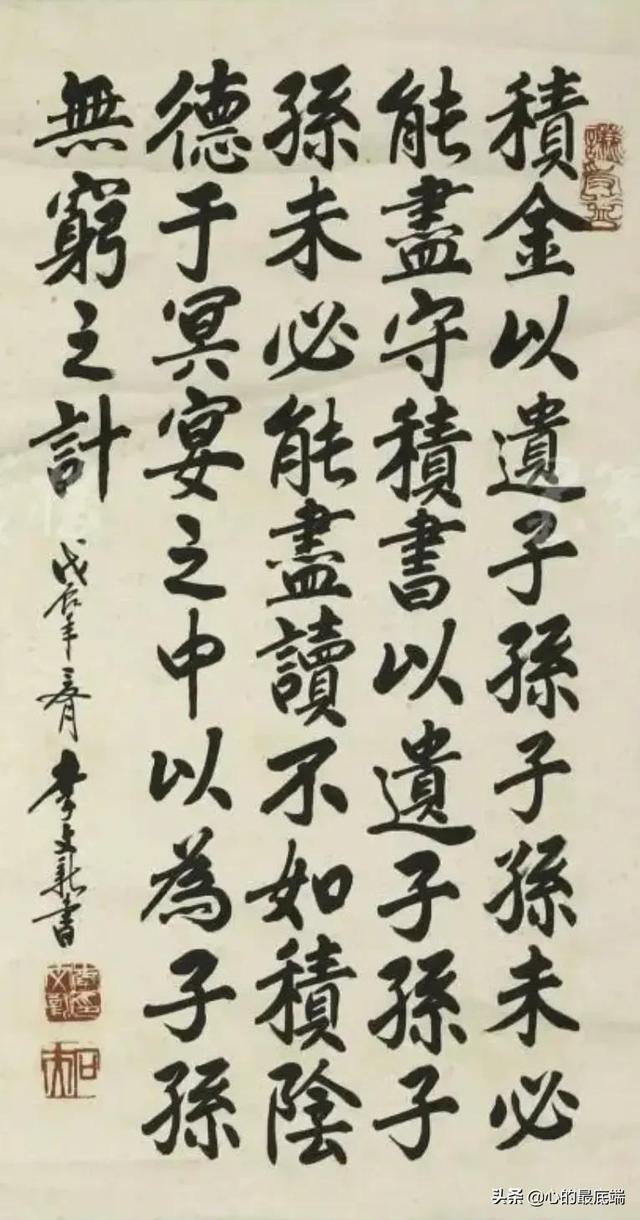 積金以遺子孫子孫未必
能盡守積書以遺子孫子
孫未必能盡讀不如積陰
德于冥宴之中以為子孫
無窮之計
李文新書
头条 @心的最底端